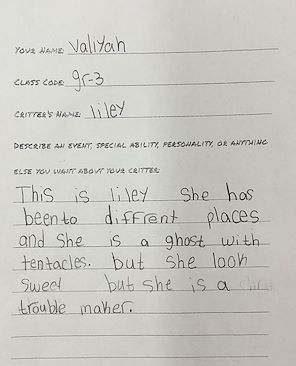 YOUR NAME: Valiyah
CLASS CODE: gr-3
CRITTER'S NAME: liley
DESCRIBE AN EVENT, SPECIAL ABILITY, PERSONALITY, OR ANYTHING
ELSE YOU WANT ABOUT YOUR CRITTER:
This is liley She has
been to diffrent places
and She is a ghost with
tentacles. but she look
sweet but she is a
trouble maker.